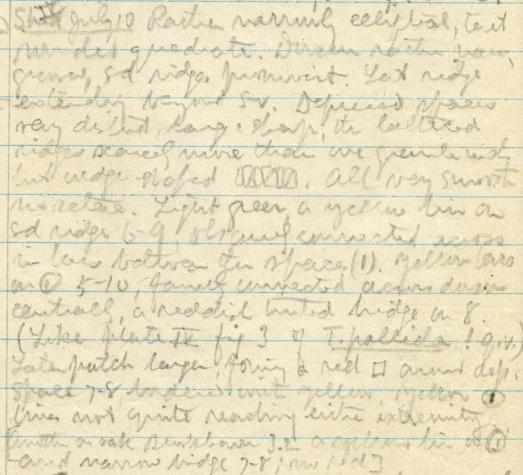 July 10 Rather narrowly elliptical, tail
rounded quadrate. Dorsum rather narrow,
green, sd ridge prominent. Lat ridge
extending beyond sv. Depressed spaces
very distinct, large & sharp, the lateral
ridges scarcely more than one granule wide
but wedge-shaped. All very smooth
no setae. Light green, a yellow line on
sd ridge 6-9, obscurely connected across
in lines between the spaces (1). Yellow lines
on ① 5-10, faintly connected across dorsum
centrally, a reddish tinted bridge on 8.
(Like plate IV fig 3 of T. pallida! q.v.)
Later patch larger, forming a red □ around dep.
space 7-8 bordered with yellow, yellow
lines not quite reaching either extremity
[another on oak 3.2 a yellow line on ①
and narrow bridge 7-8, no red]